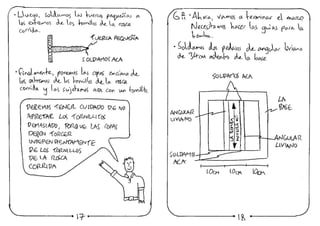 • Luego, soldamos las tuercas pequeñas a
los extremos de los tornillos de la rosca
corrida.
TUERCA PEQUEÑA
SOLDAMOS ACA
• Finalmente, ponemos las copas encima de
los extremos de los tornillos de la rosca
corrida y las sujetamos acá con un tornillito
DEBEMOS TENER CUIDADO DE NO
APRETAR LOS TORNILLITOS
DEMASIADO, PORQUE LAS COPAS
DEBEN TORCER
INDEPENDIENTEMENTE
DE LOS TORNILLOS
DE LA ROSCA
CORRIDA
17
• Ahora, vamos a terminar el marco
Necesitamos hacer las guías para la
bomba.
• Soldamos dos pedazos de angular liviano
de
adentro de la base
SOLDAMOS ACA
ANGULAR
LIVIANO
LA BOMBA
LA
BASE
ANGULAR
LIVIANO
SOLDAMOS
ACA
10cm 10cm 10cm
18